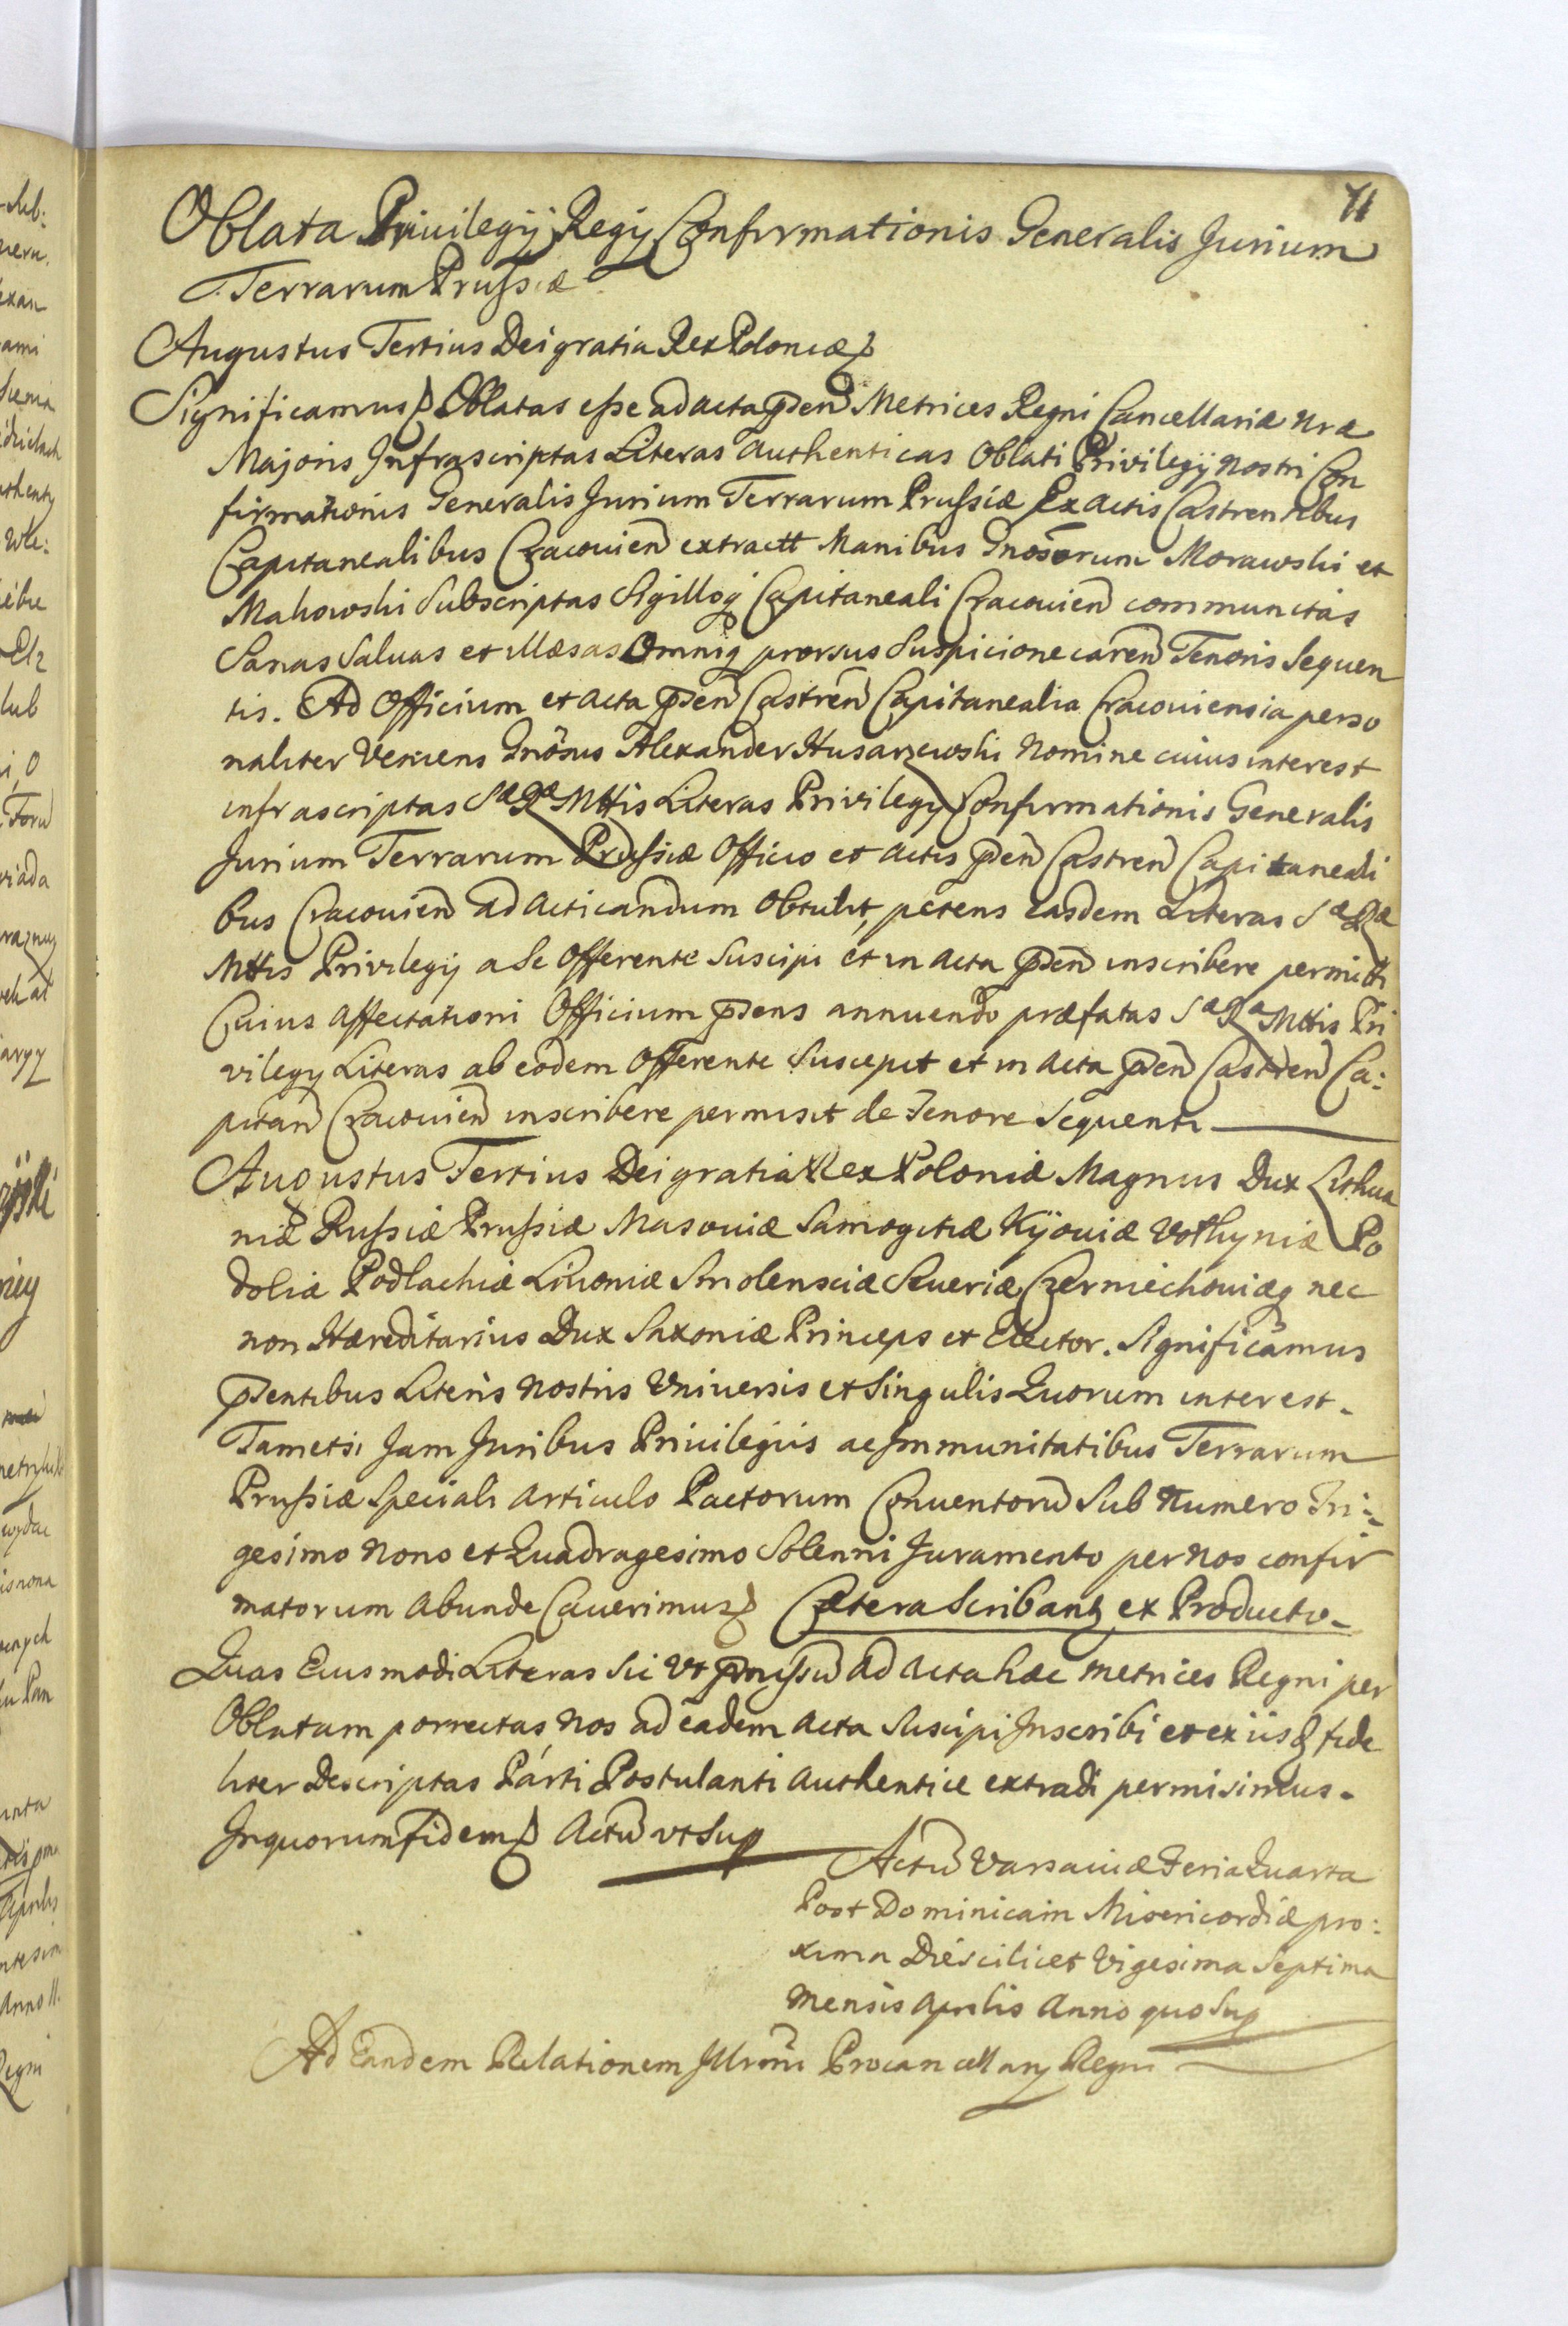 71
Oblata Priuilegij Regij Confirmationis Generalis Jurium
Terrarum Prussiæ
Augustus Tertius Dei gratia Rex Poloniæ
Significamus Oblatas esse ad acta pñseñ Metrices Regni Cancellariæ nræ
Majoris Infrascriptas Literas authenticas Oblati Privilegij nostri Con
firmationis Generalis Jurium Terrarum Prussiæ Ex actis Castrensibus
Capitanealibus Cracouien extractt Manibus Gnosorum Morawski et
Makowski Subscriptas Sigilloq Capitaneali Cracouien communitas
Sanas Saluas et illæsas Omniq prorsus Suspicione careñ Tenoris Sequen
tis. Ad Officium et acta pñseñ Castreñ Capitanealia Cracouiensia perso
naliter Veniens Gnosus Alexander Husarzewski Nomine cuius interest
infrascriptas Sæ Ræ Mttis Literas Privilegij Confirmationis Generalis
Jurium Terrarum Prussiæ Officio et actis pñseñ Castreñ Capitaneali
bus Cracouien ad acticandum Obtulit, petens easdem Literas Sæ Ræ
Mttis Privilegij a Se Offerente Suscipi et in acta pñseñ inscribere permitti
Cuius affectationi Officium pñsens annuendo præfatas Sæ Ræ Mttis Pri
vilegij Literas ab eodem Offerente Suscepit et in acta pñseñ Castreñ Ca:
pitañ Cracouien inscribere permisit de Tenore Sequenti
Augustus Tertius Dei gratia Rex Poloniæ Magnus Dux Lithua
niæ Russiæ Prussiæ Masouiæ Samogitiæ Kijouiæ Volhyniæ Po
doliæ Podlachiæ Liuoniæ Smolensciæ Seueriæ Czerniechouiæq nec
non Hæreditarius Dux Saxoniæ Princeps et Elector. Significamus
pñsentibus Literis Nostris Vniversis et Singulis Quorum interest.
Tametsi Jam Juribus Priuilegiis ac Immunitatibus Terrarum
Prussiæ Speciali articulo Pactorum Conuentorũ Sub Numero Tri:
gesimo Nono et Quadragesimo Solenni Juramento per Nos confir
matorum abunde Cauerimus Cætera Scribantq ex Producto.
Quas Eiusmodi Literas Sic Vt pmissũ ad acta hæc Metrices Regni per
Oblatam porrectas, Nos ad eadem acta Suscipi Inscribi et ex iisq fide
liter Descriptas Parti Postulanti authentice extradi permisimus.
In quorum Fidem Actũ vt Sup
Actũ Varsauiæ Feria Quarta
Post Dominicam Misericordiæ pro:
xima Die scilicet Vigesima Septima
Mensis Aprilis Anno quo Sup
Ad Eandem Relationem Illrmi Procancellarij Regni